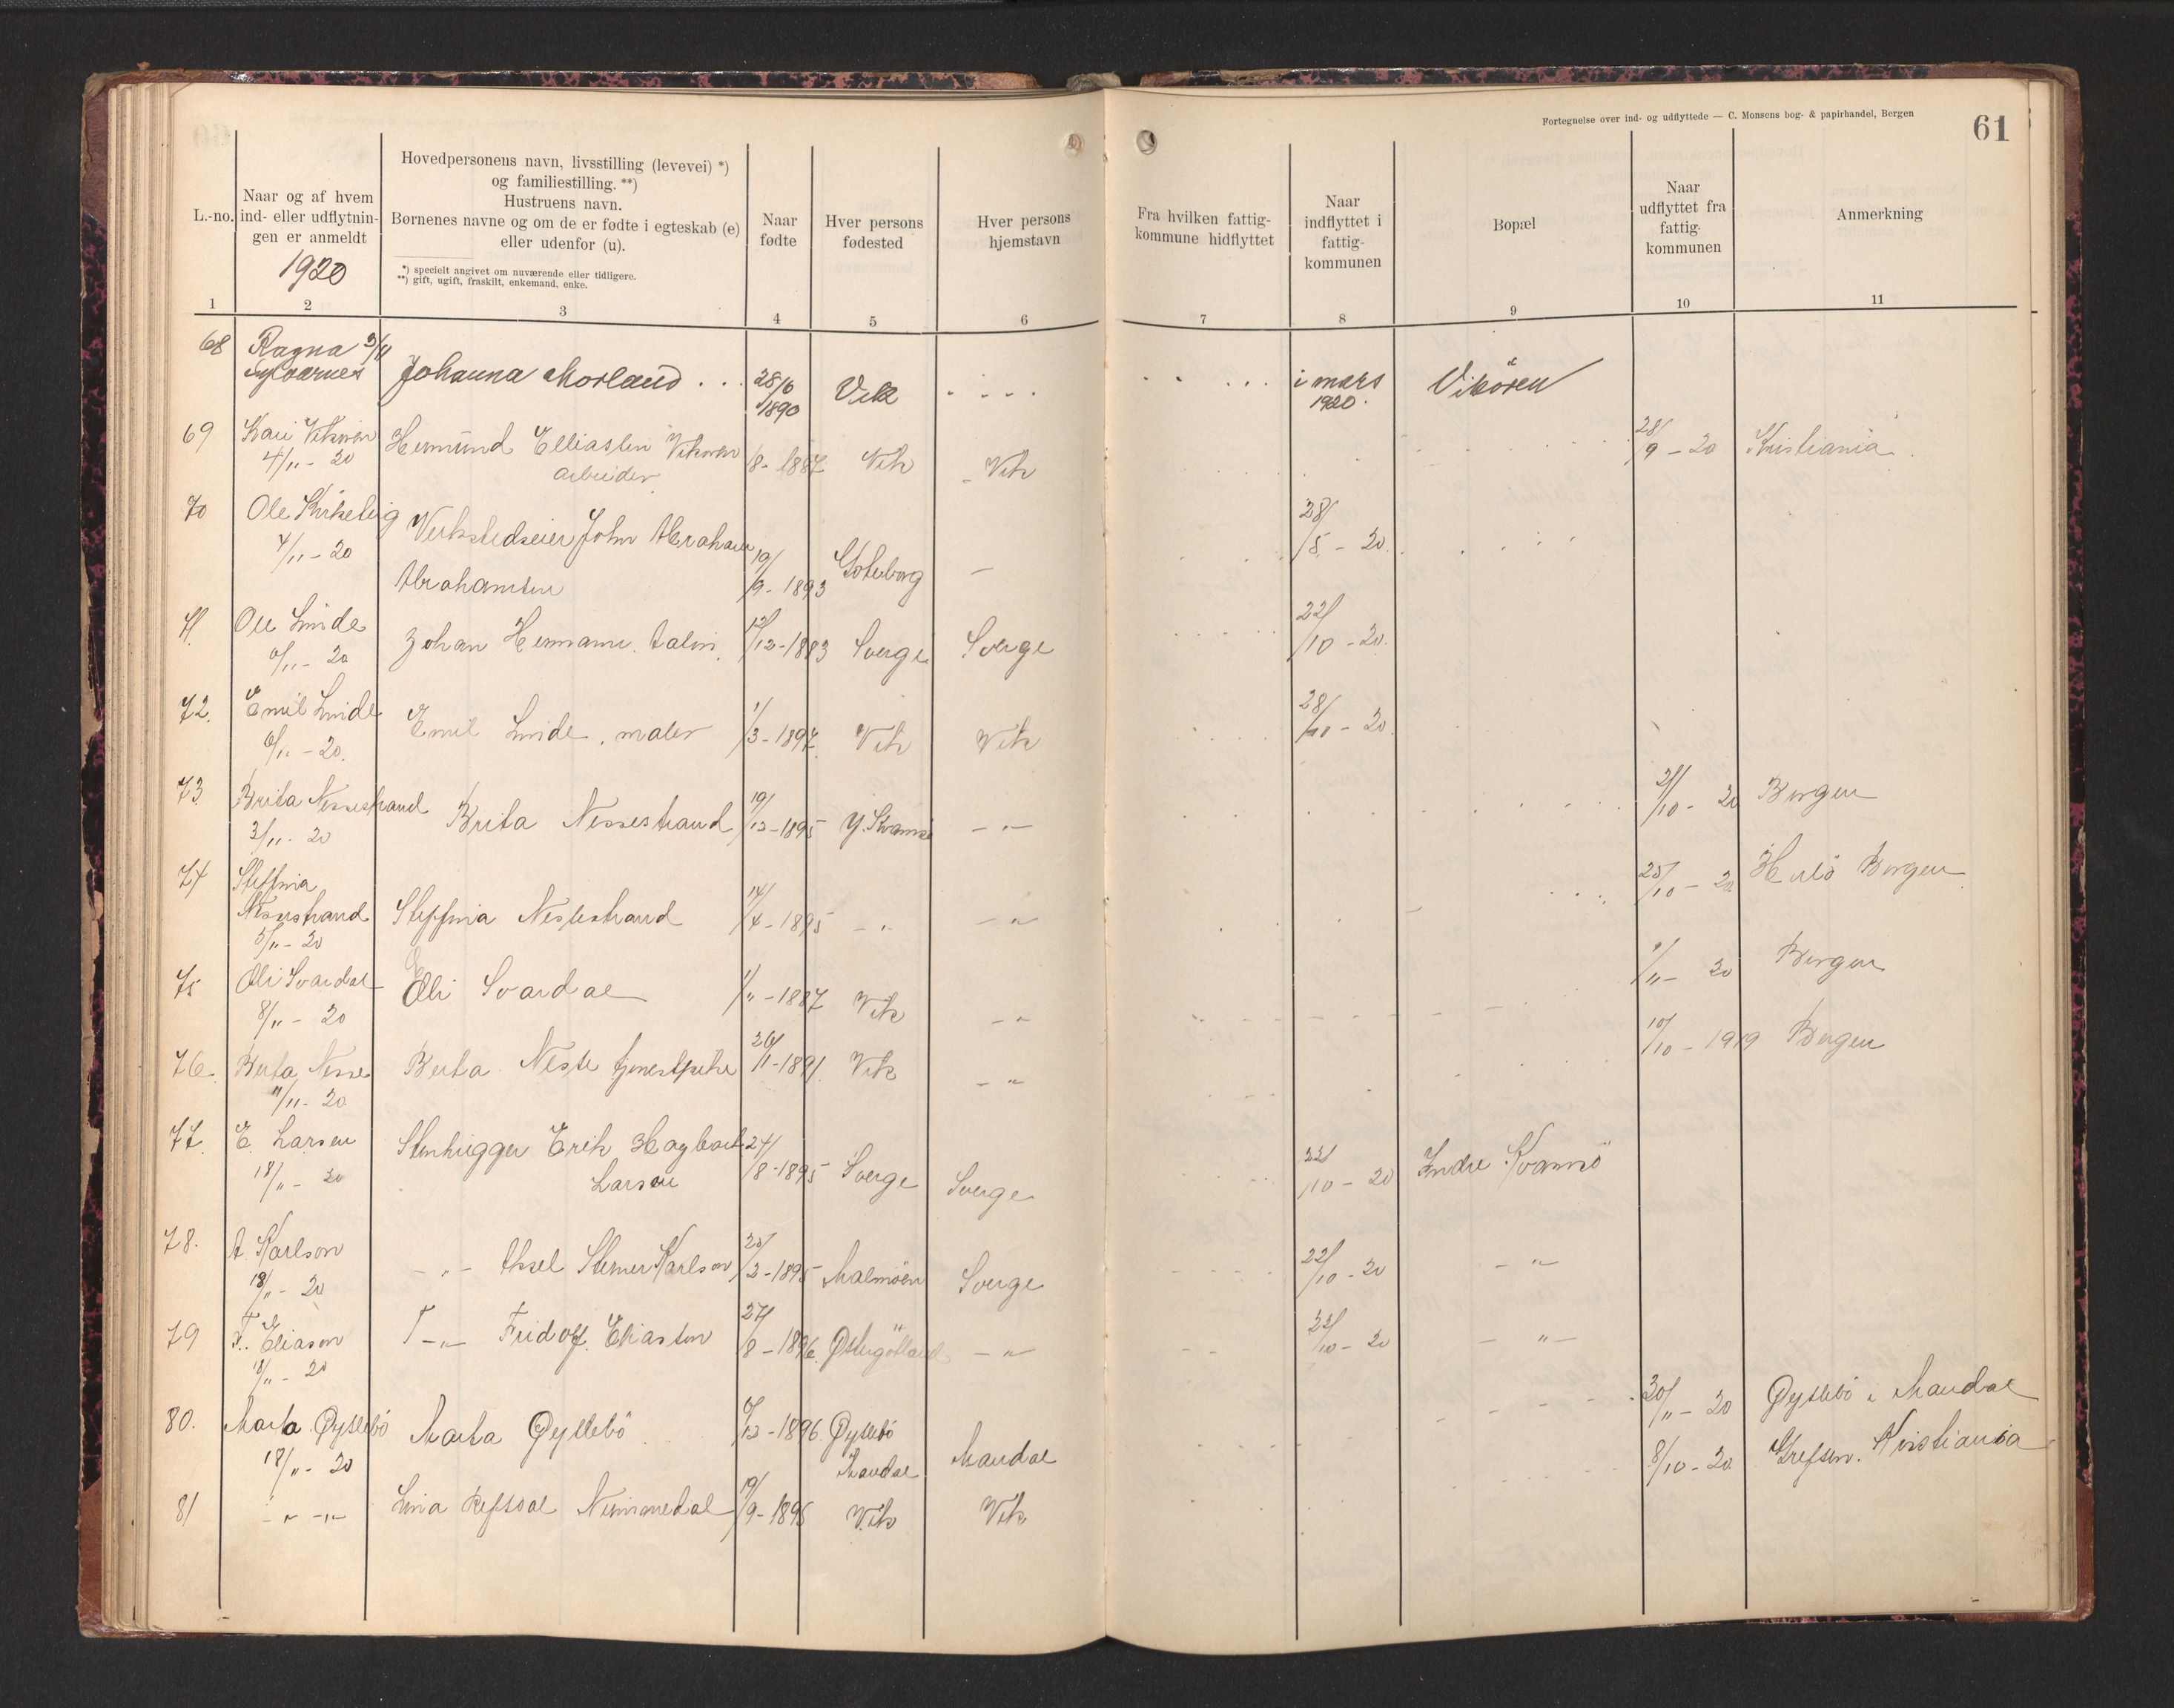 Fortegnelse over ind- og udflyttede — C. Monsens bog- & papirhandel, Bergen
61
L.-no.
Naar og af hvem
ind- eller udflytnin-
gen er anmeldt
1920
Hovedpersonens navn, livsstilling (levevei) *)
og familiestilling. **)
Hustruens navn.
Børnenes navne og om de er fødte i egteskab (e)
eller udenfor (u).
*) specielt angivet om nuværende eller tidligere.
**) gift, ugift, fraskilt, enkemand, enke.
Naar
fødte
Hver persons
fødested
Hver persons
hjemstavn
Fra hvilken fattig-
kommune hidflyttet
Naar
indflyttet i
fattig-
kommunen
Bopæl
Naar
udflyttet fra
fattig-
kommunen
Anmerkning
1 2 3 4 5 6 7 8 9 10 11
68 Ragna 3/11 Johanna Morland . . . 28/6 1890 Vik - - - - i mars 1920. Vikören
69 Kari Vikøren 4/11 - 20 Hermund Elliassen Vikøren arbeider /8 - 1887 Vik Vik 28/9 - 20 Kristiania
70 Ole Kirkeleig 4/11 - 20 Verkstedseier John Abraham Abrahamsen 19/9 - 1893 Göteborg — 28/5 - 20.
71. Ole Linde 6/11 - 20 Johan Hermann 12/12 - 1883 Sverge Sverge 22/10 - 20.
72. Emil Linde 6/11 - 20. Emil Linde, maler 1/3 - 1897 Vik Vik 28/10 - 20.
73 Brita Nessestrand 3/11 - 20 Brita Nessestrand 19/12 - 1895 Y. Kvamsø - " - 21/10 - 20 Bergen
74 Steffina Nessestrand 5/11 - 20 Steffina Nessestrand 14/4 - 1895 - " - " 25/10 - 20 Bergen
75 Oli Svardal 8/11 - 20 Oli Svardal 1/11 - 1887 Vik - " 9/11 - 20 Bergen
76. Berta Nesse 11/11 - 20 Berta Nesse tjenestpike 26/11 - 1891. Vik - " 10/10 - 1919 Bergen
77. E. Larsen 18/11 - 20 Stenhugger Erik Hagbart Larsen 24/8 - 1895 Sverge Sverge 22/10 - 20 Indre Kvamsö
78. A. Karlson 18/11 - 20 - " - Aksel Karlson 20/2 - 1895 Malmöen Sverge 22/10 - 20 - " -
79 F. Eliason 18/11 - 20 - " - Fridolf Eliasson 27/8 - 1896. Østergötland - " 22/10 - 20 - " -
80. Marta Øyslebö 18/11 - 20 Marta Øyslebö 6/12 - 1896. Øyslebö Mandal Mandal 20/11 - 20 Øyslebö i Mandal
81 - " - " - Lina Refsdal Nummedal 19/9 - 1895 Vik Vik 8/10 - 20 Grefsen. Kristiania